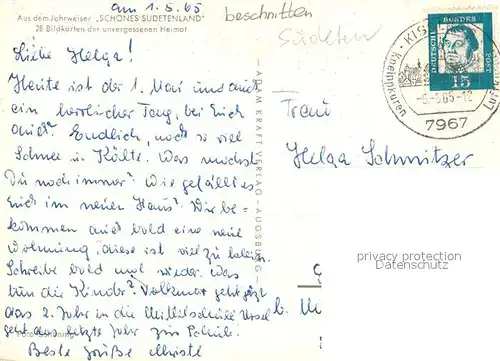 am 1.5.65
beschnitten
Aus dem Jahrweiser „SCHÖNES SUDETENLAND"
28 Bildkarten der unvergessenen Heimat
Sudeten
Liebe Helga!
Heute ist der 1. Mai und auch
ein herrlicher Tag, bei Euch
auch? Endlich, nach so viel
Schnee u. Kälte. Was machst
Du noch immer? Wie gefällt es
Euch im neuen Haus? Wir be-
kommen auch bald eine neue
Wohnung diese ist viel zu klein.
Schreibe bald mal wieder. Was
tun die Kinder? Volkmar geht jetzt
das 2. Jahr in die Mittelschule Ursel
geht das letzte Jahr zur Schule.
Beste Grüße Christl
ADAM KRAFT VERLAG - AUGSBURG
DEUTSCHE BUNDESPOST
15
Kneippkuren
-5.65-12
7967
Frau
Helga Schmitzer
privacy protection
Datenschutz
b. M